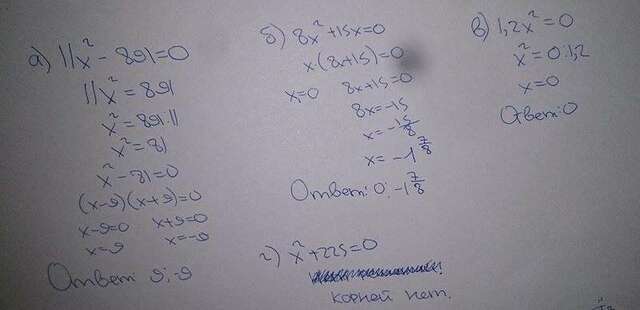 а) 11x² - 891=0
11x² = 891
x² = 891:11
x² = 81
x² - 81=0
(x-9)(x+9)=0
x-9=0 x+9=0
x=9 x=-9
Ответ: 9; -9
б) 8x² +15x=0
x(8x+15)=0
x=0 8x+15=0
8x=-15
x= -15/8
x= -1 7/8
Ответ: 0; -1 7/8
в) 1,2x² =0
x² =0:1,2
x=0
Ответ: 0
г) x² +225=0
корней нет.